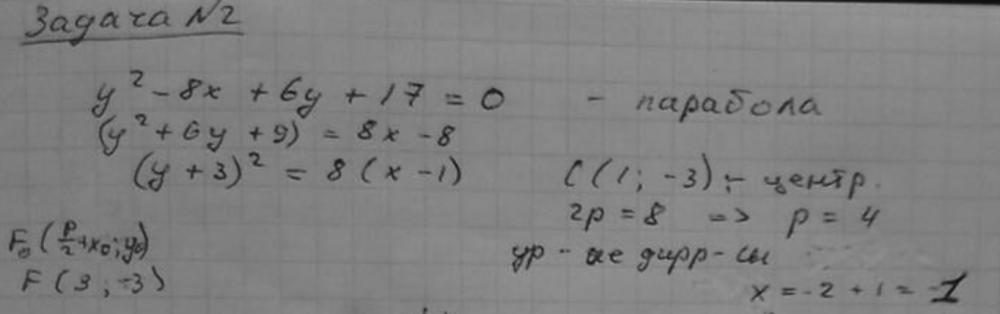 Задача №2
y² - 8x + 6y + 17 = 0 - парабола
(y² + 6y + 9) = 8x - 8
(y + 3)² = 8(x - 1)
C(1; -3) - центр.
2p = 8 => p = 4
F₀(p/2 + x₀; y₀)
F(3; -3)
ур-ие дирр-сы
x = -2 + 1 = -1